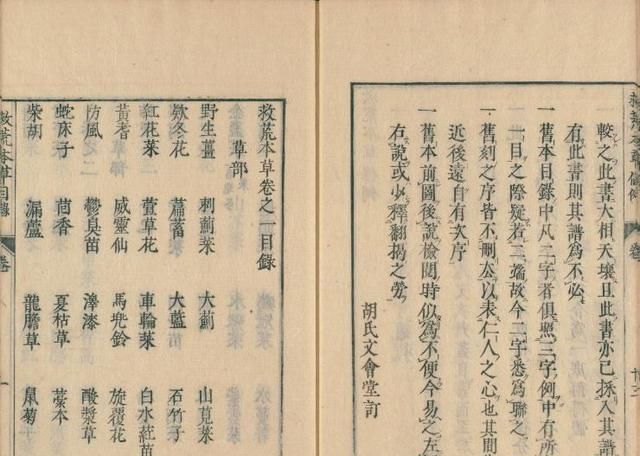 較之此書大相天壤且此書亦已採入其譜
有此書則其譜爲不必
一舊本目錄中凡二字者俱照三字例中有所
一目之際疑若二端故今二字悉爲聯之
一舊刻之序皆不刪去以表仁人之心也其間
近後遠自有次序
一舊本前圖後說檢閱時似爲不便今易之左
右說或少釋翻揭之勞
胡氏文會堂訂
救荒本草卷之一目錄
草部
野生薑 刺薊菜 大薊 山莧菜
欵冬花 萹蓄 大藍苗 石竹子
紅花菜 萱草花 車輪菜 白水葒苗
黃耆 威靈仙 馬兠鈴 旋覆花
防風 鬱臭苗 澤漆 酸漿草
蛇床子 茴香 夏枯草 藁本
柴胡 漏蘆 龍膽草 鼠菊
救荒本草目錄
卷
一